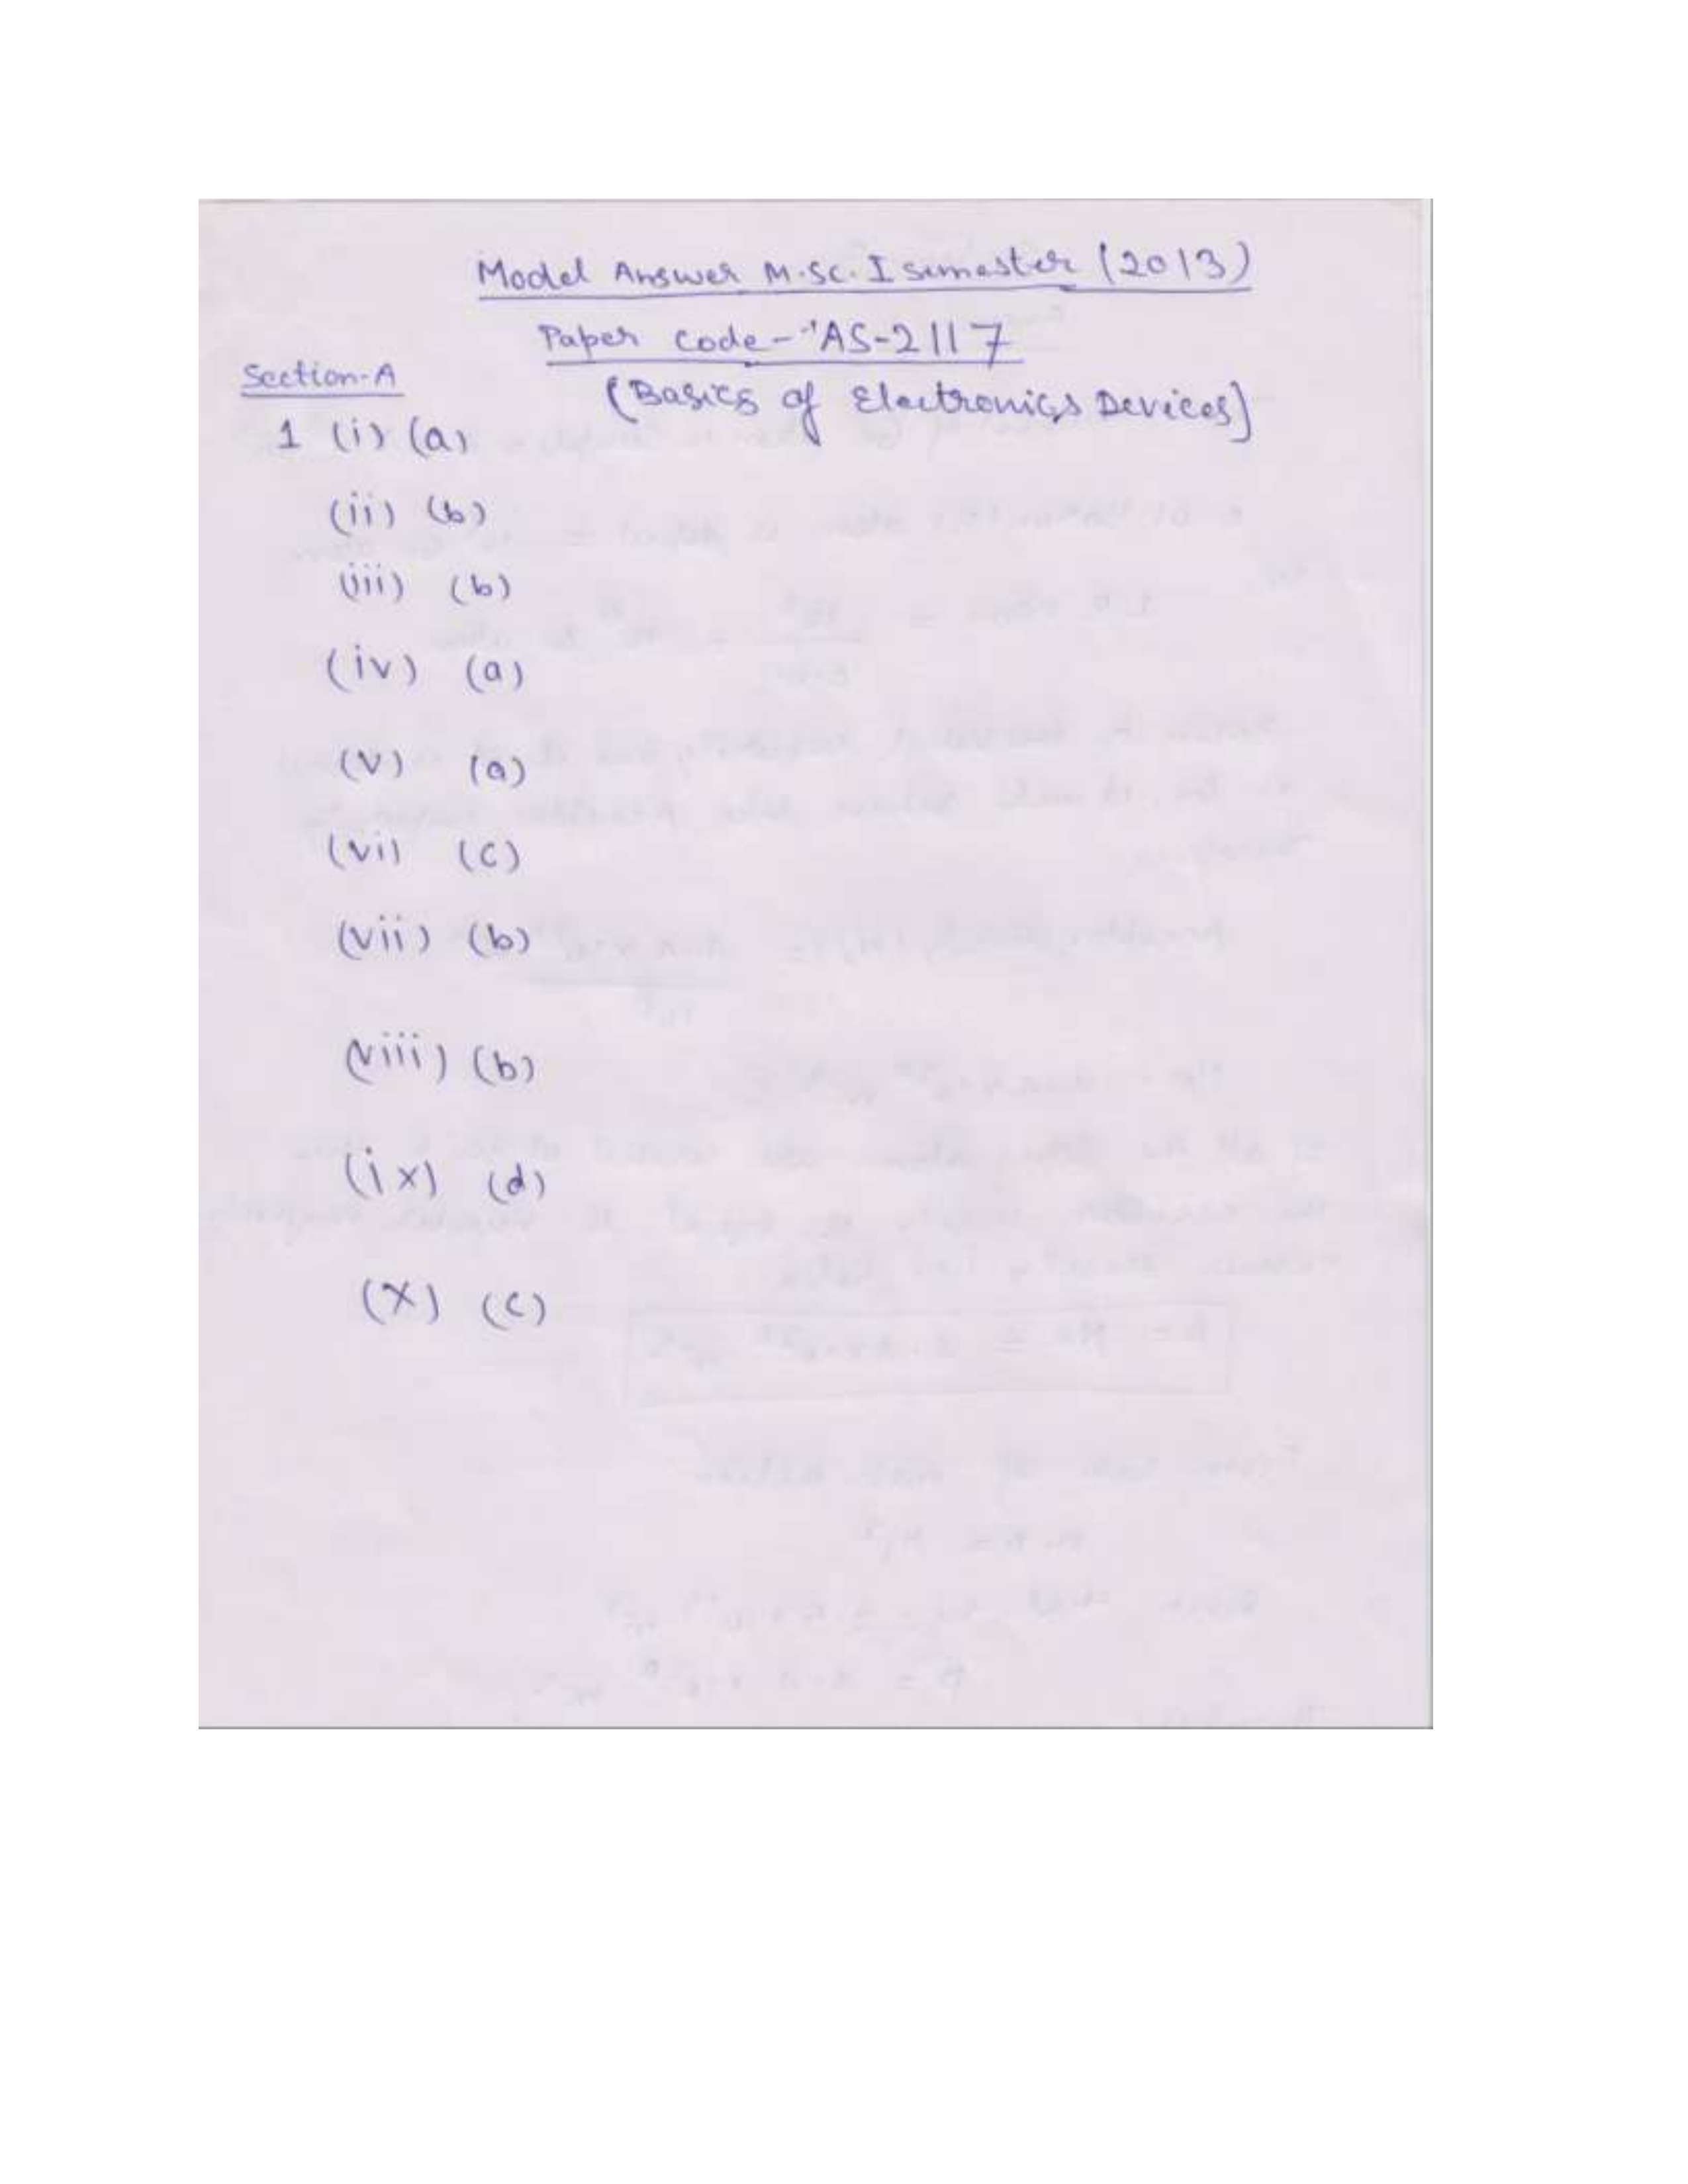 Model Answer M.Sc. I Semester (2013)
Paper Code - AS-2117
Section-A
(Basics of Electronics Devices)
1 (i) (a)
(ii) (b)
(iii) (b)
(iv) (a)
(v) (a)
(vi) (c)
(vii) (b)
(viii) (b)
(ix) (d)
(x) (c)